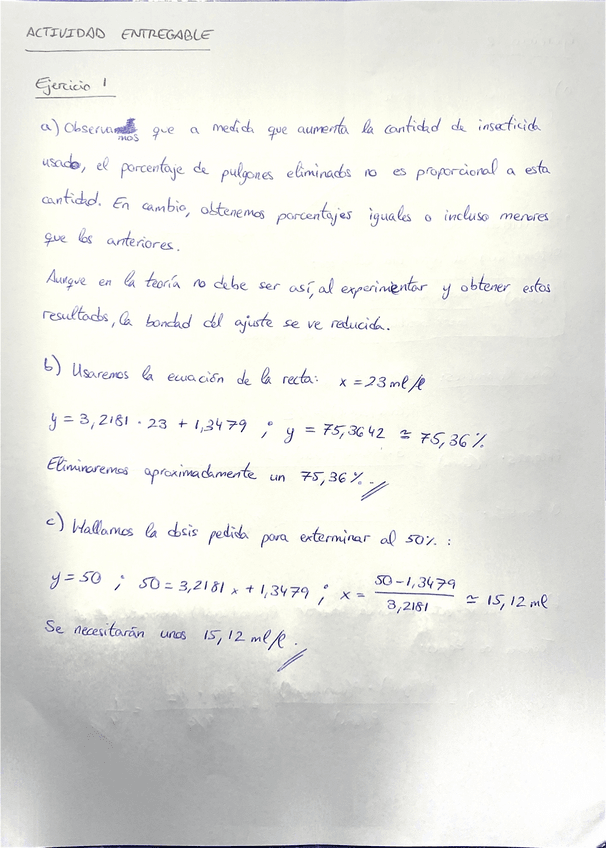 ACTIVIDAD ENTREGABLE
Ejercicio 1
a) Observamos que a medida que aumenta la cantidad de insecticida
usado, el porcentaje de pulgones eliminados no es proporcional a esta
cantidad. En cambio, obtenemos porcentajes iguales o incluso menores
que los anteriores.
Aunque en la teoría no debe ser así, al experimentar y obtener estos
resultados, la bondad del ajuste se ve reducida.
b) Usaremos la ecuación de la recta: x = 23 ml/l
y = 3,2181 · 23 + 1,3479 ; y = 75,3642 ≃ 75,36%
Eliminaremos aproximadamente un 75,36%.
c) Hallamos la dosis pedida para exterminar al 50%:
y = 50 ; 50 = 3,2181 x + 1,3479 ; x = (50 - 1,3479) / 3,2181 ≃ 15,12 ml
Se necesitarán unos 15,12 ml/l.